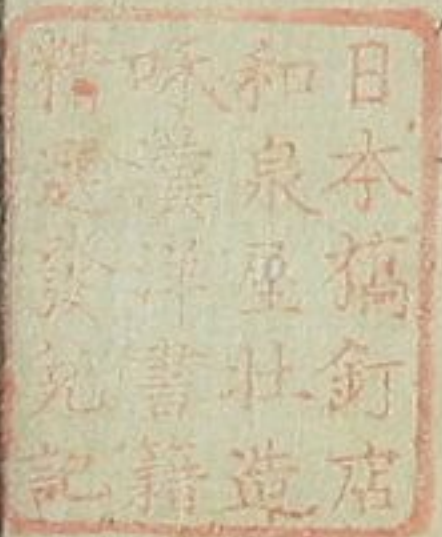 日本槗釘店
和泉屋壮造
咊漢洋書籍
精選發兌記